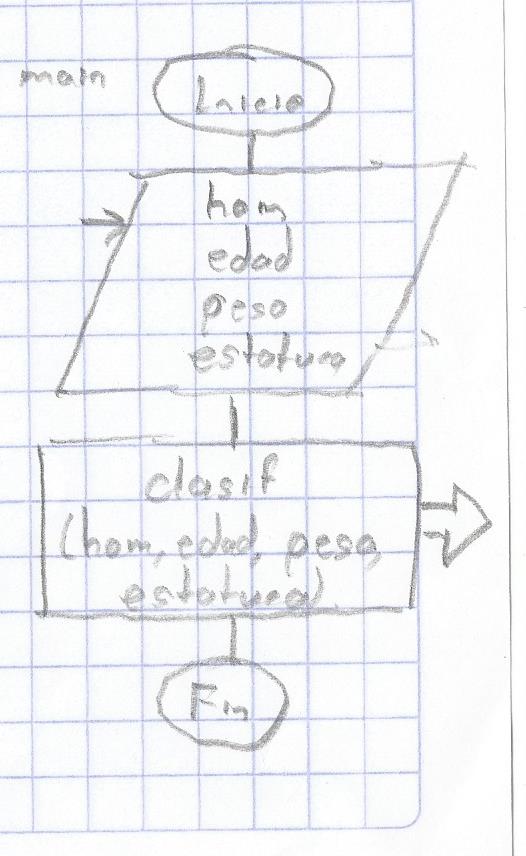 main
Inicio
hom
edad
peso
estatura
clasif
(hom, edad, peso,
estatura)
Fin